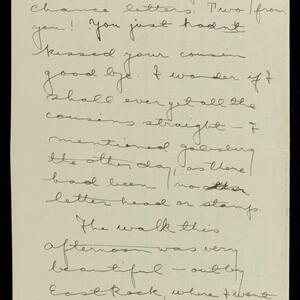 chance letters. Two from
you! You just hadn't
kissed your cousin
good bye. I wonder if I
shall ever get all the
cousins straight – I
mentioned Galesburg
the other day, as there
had been no
letter head or stamp.
The walk this
afternoon was very
beautiful – out by
East Rock, where I went